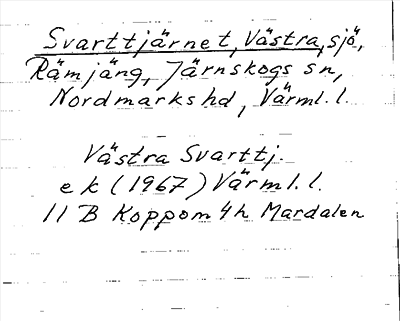 Svarttjärnet, Västra, sjö,
Rämjäng, Järnskogs sn,
Nordmarks hd, Värml. l.
Västra Svarttj.
e k (1967) Värml. l.
11 B Koppom 4h Mardalen